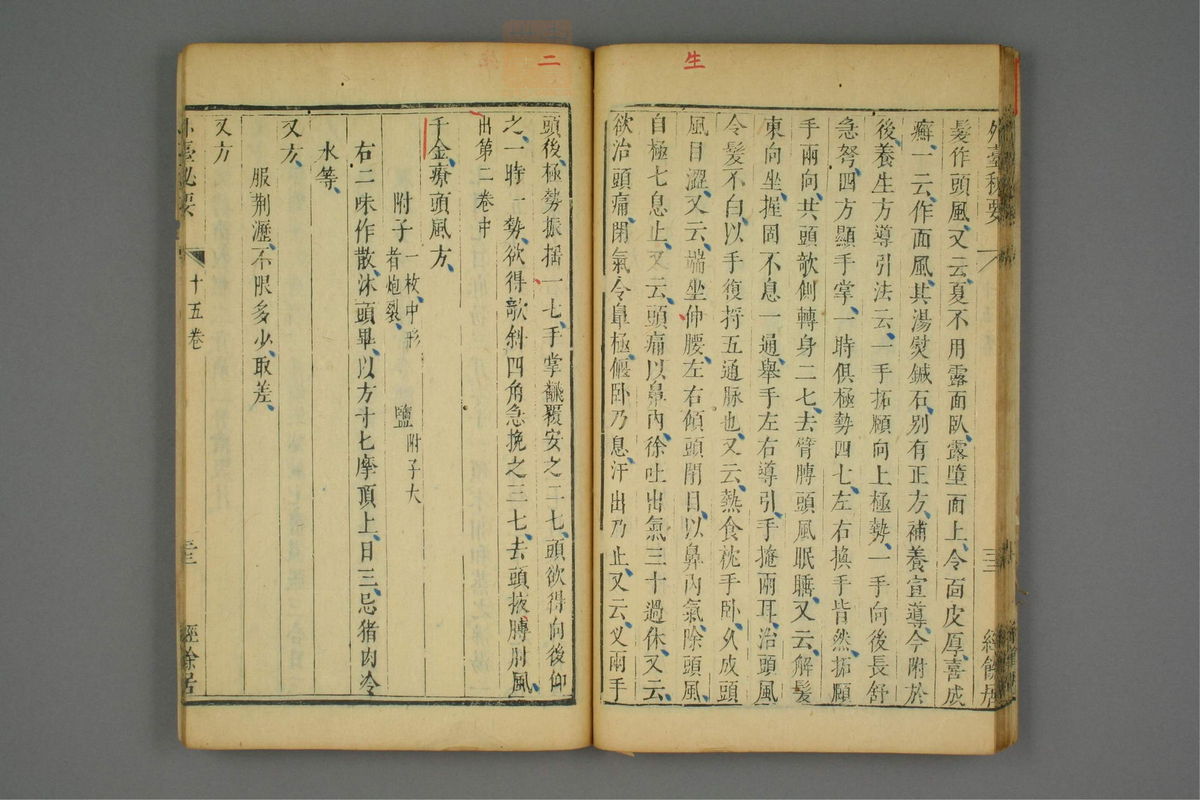 生
髮作頭風、又云、夏不用露面臥、露墮面上、令面皮厚、喜成
癬、一云、作面風、其湯熨鍼石、別有正方、補養宣導、今附於
後、養生方導引法云、一手拓頤向上極勢、一手向後長舒
急努、四方顯手掌、一時俱極勢四七、左右換手皆然、拓頤
手兩向、共頭欹側轉身二七、去臂膊頭風眠睡、又云、解髮
東向坐、握固不息一通、舉手左右導引、手掩兩耳、治頭風
令髮不白、以手復捋五通脉也、又云、熱食枕手臥、久成頭
風目澀、又云、端坐伸腰、左右傾頭閉目、以鼻內氣、除頭風、
自極七息止、又云、頭痛以鼻內、徐吐出氣三十過休、又云、
欲治頭痛、閉氣令鼻極、偃臥乃息、汗出乃止、又云、叉兩手
二
頭後、極勢振搖二七、手掌翻覆安之二七、頭欲得向後仰
之、一時一勢、欲得欹斜四角急挽之三七、去頭掖膊肘風、
出第二卷中
千金療頭風方、
附子一枚、中形者炮裂、 鹽附子大
右二味作散、沐頭畢、以方寸匕摩頂上、日三、忌猪肉冷
水等、
又方、
服荆瀝、不限多少、取差、
又方
外臺秘要 十五卷 三 經餘居